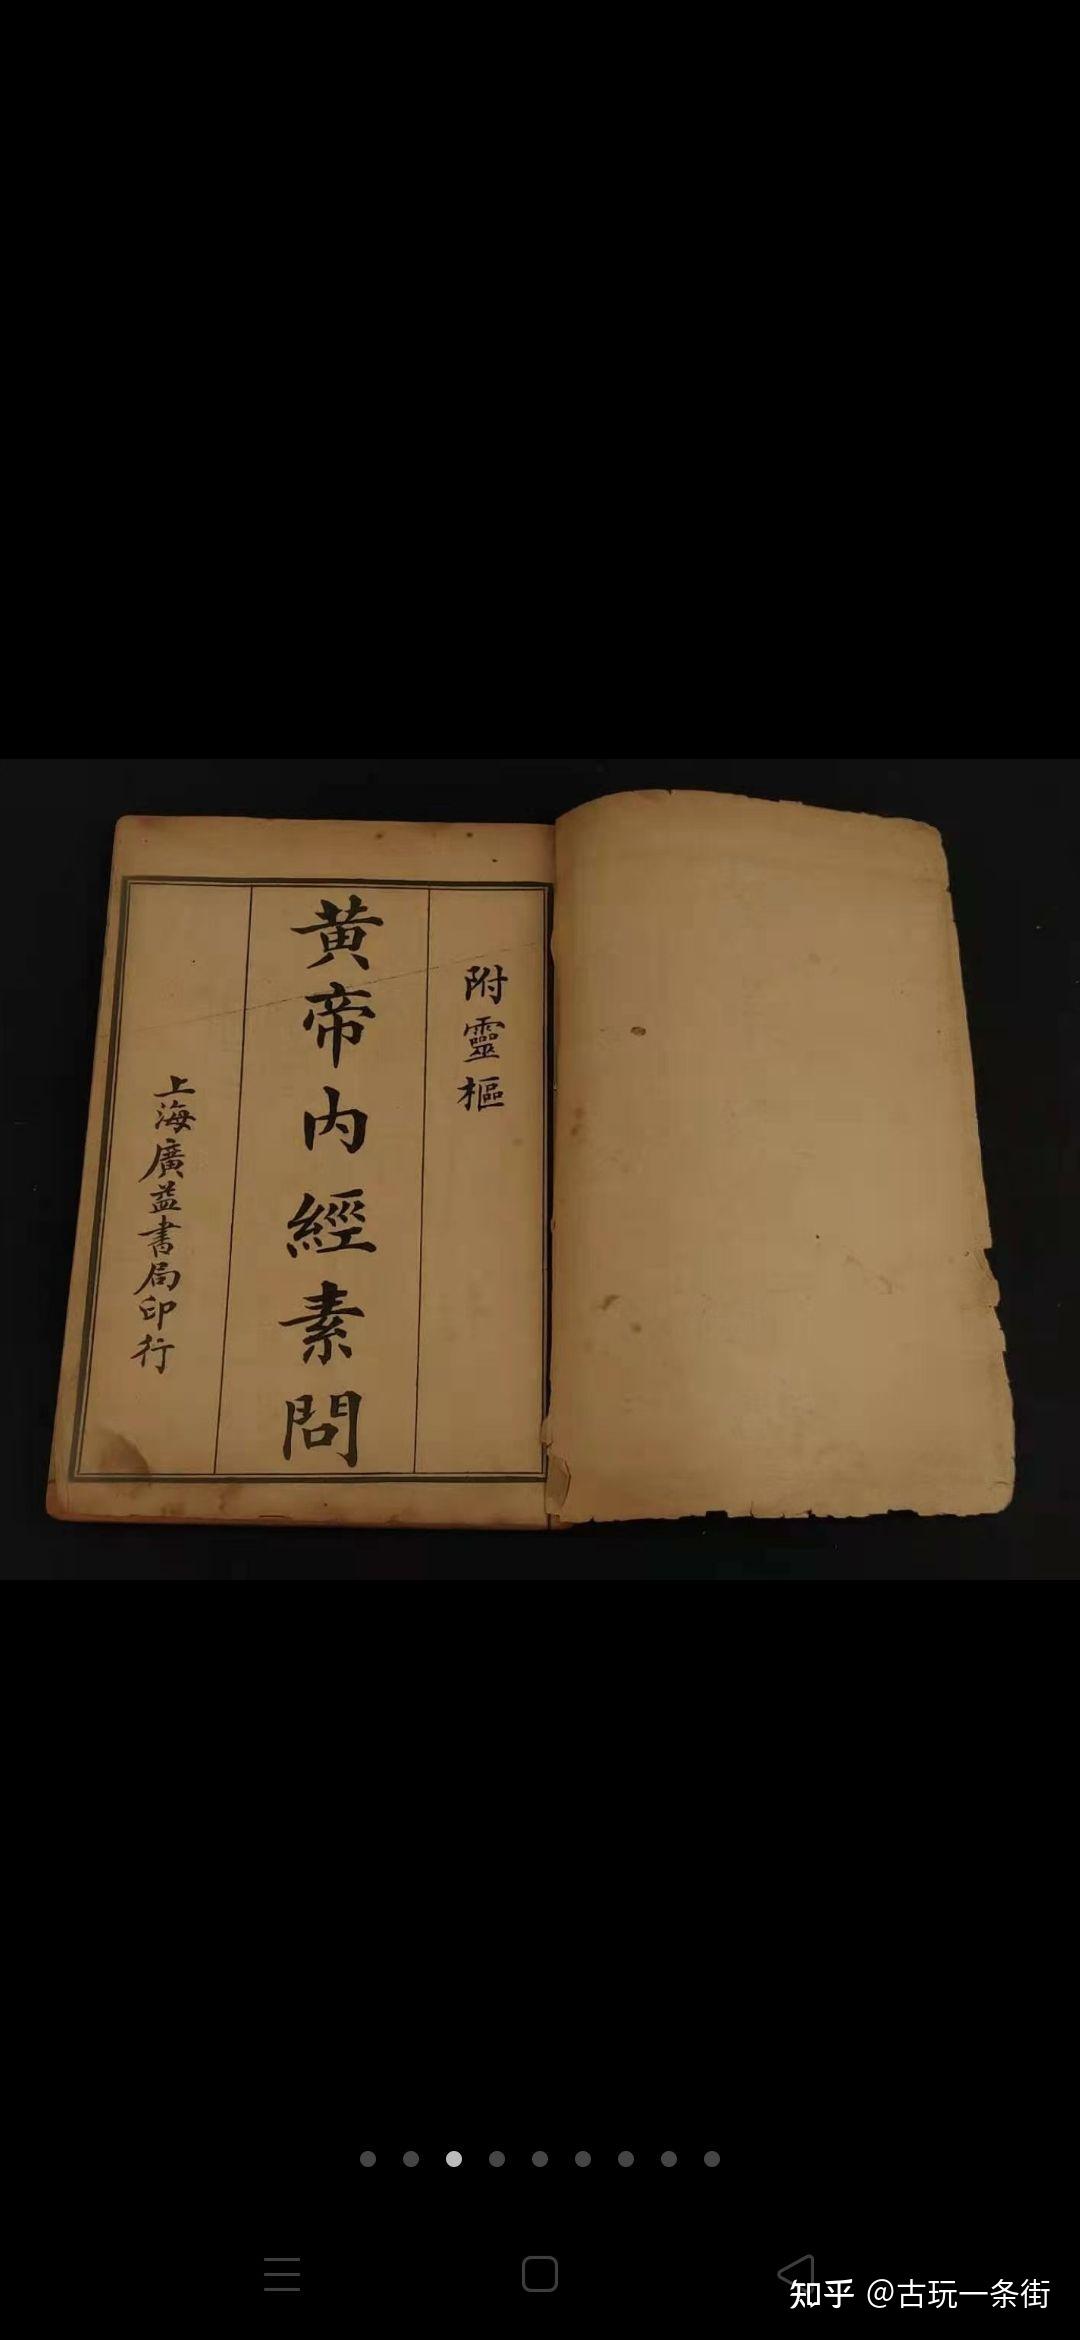 附靈樞
黄帝内經素問
上海廣益書局印行
知乎 @古玩一条街